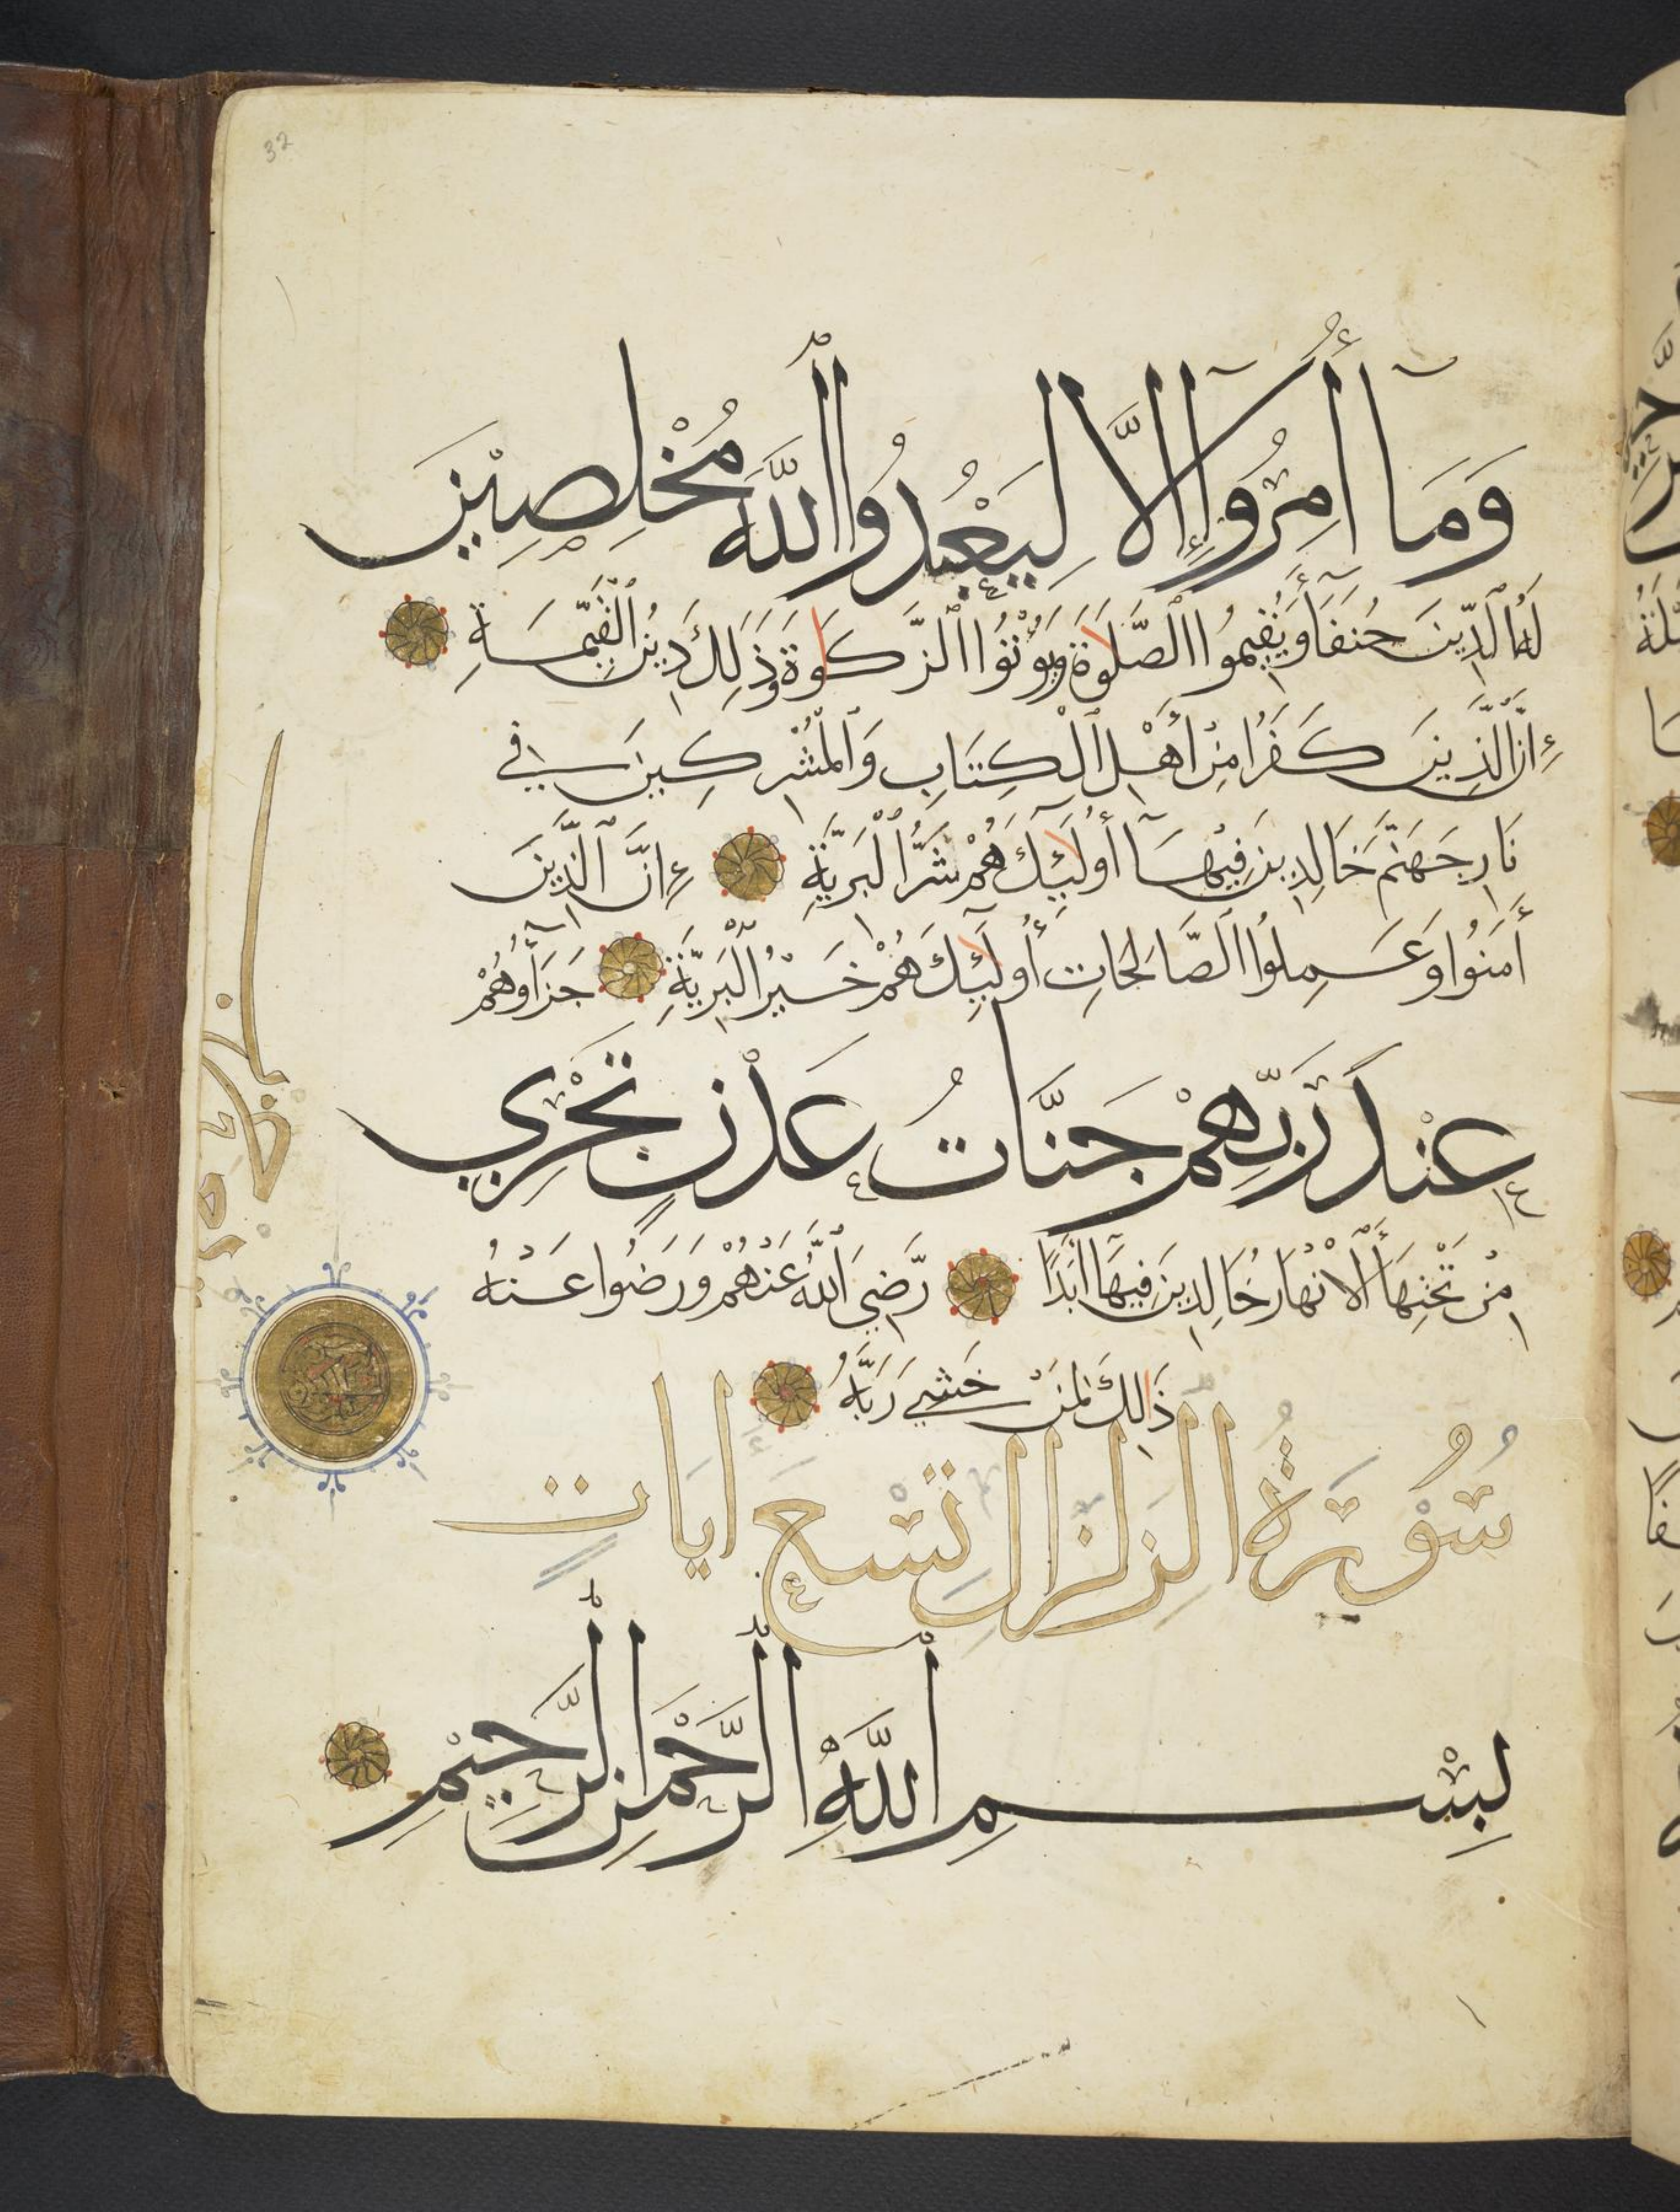 32
وَمَآ أُمِرُوٓا۟ إِلَّا لِيَعْبُدُوا ٱللَّهَ مُخْلِصِيْنَ
لَهُ ٱلدِّينَ حُنَفَآءَ وَيُقِيمُوا ٱلصَّلَوٰةَ وَيُؤْتُوا ٱلزَّكَوٰةَ وَذَٰلِكَ دِينُ ٱلْقَيِّمَةِ
إِنَّ ٱلَّذِينَ كَفَرُوا مِنْ أَهْلِ ٱلْكِتَابِ وَٱلْمُشْرِكِينَ فِي
نَارِ جَهَنَّمَ خَالِدِينَ فِيْهَآ أُولَٰٓئِكَ هُمْ شَرُّ ٱلْبَرِيَّةِ إِنَّ ٱلَّذِينَ
أَمَنُوا وَعَمِلُوا ٱلصَّالِحَاتِ أُولَٰٓئِكَ هُمْ خَيْرُ ٱلْبَرِيَّةِ جَزَآؤُهُمْ
عِنْدَ رَبِّهِمْ جَنَّاتُ عَدْنٍ تَجْرِي
مِنْ تَحْتِهَا ٱلْأَنْهَارُ خَالِدِينَ فِيهَآ أَبَدًا رَّضِيَ ٱللَّهُ عَنْهُمْ وَرَضُوا عَنْهُ
ذَٰلِكَ لِمَنْ خَشِيَ رَبَّهُ
سُوْرَةُ الزِلزَالِ تِسْعَ اٰيَاتٍ
بِسْمِ ٱللَّهِ ٱلرَّحْمَانِ ٱلرَّحِيْمِ